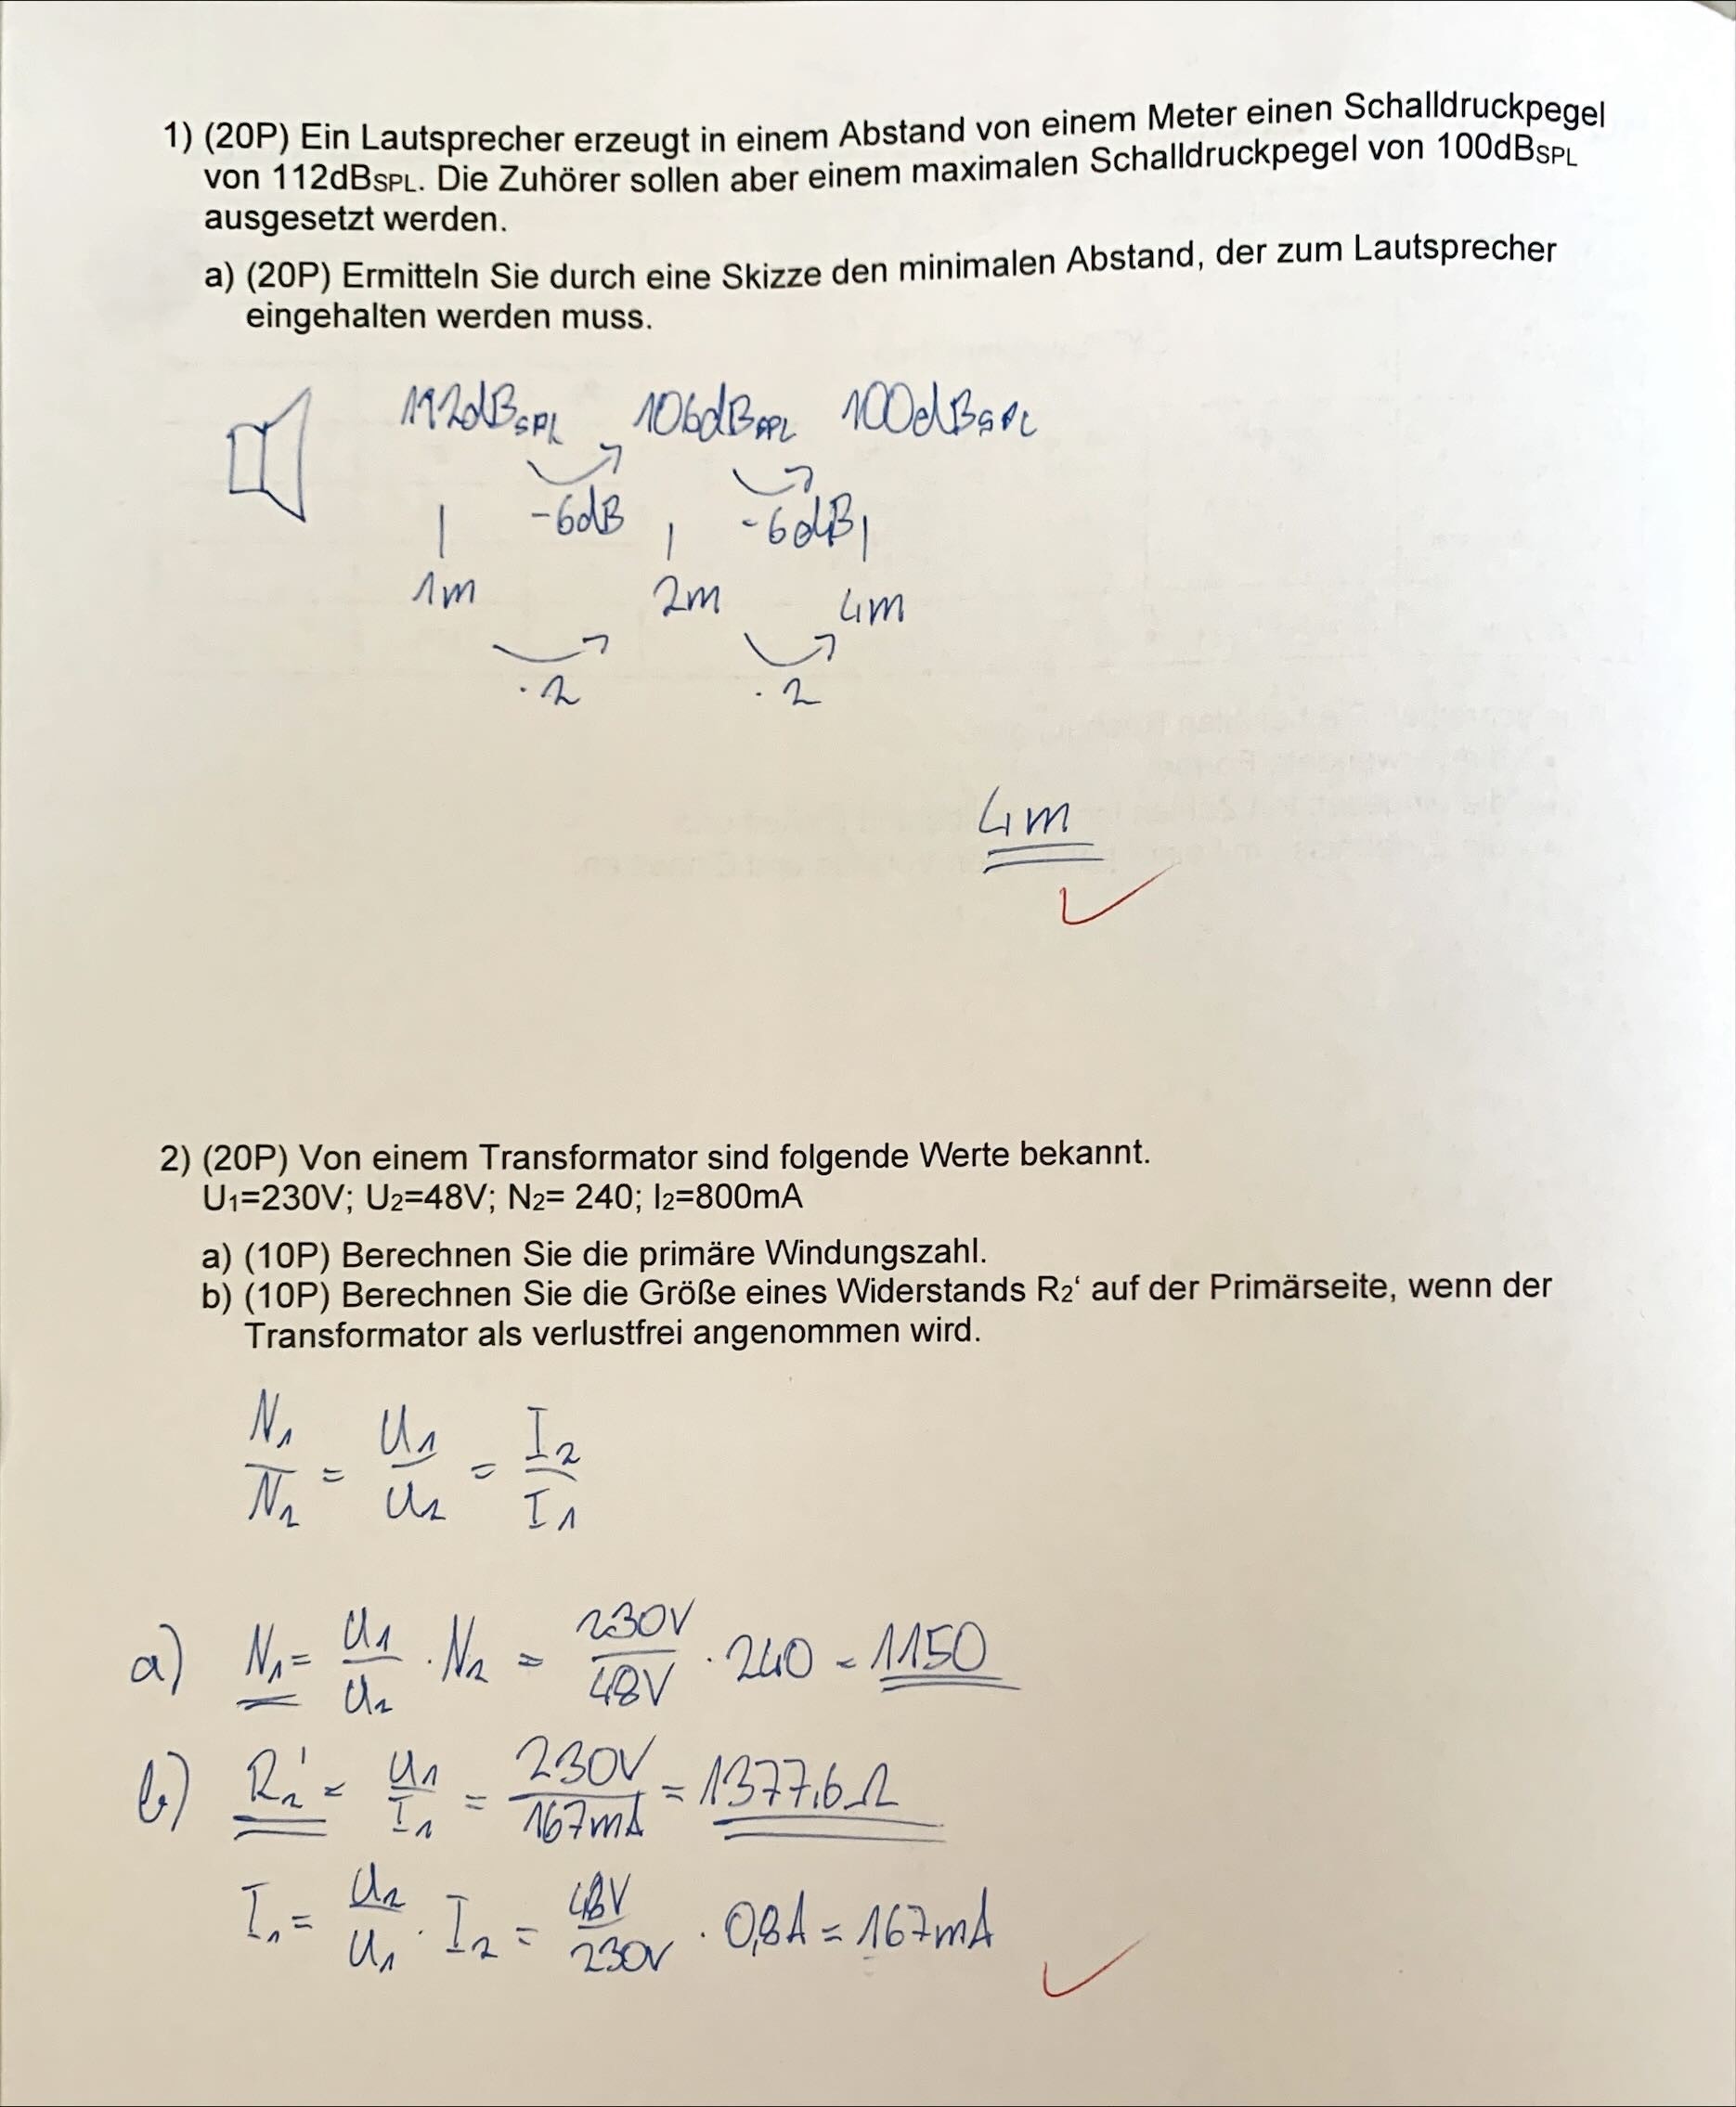 1) (20P) Ein Lautsprecher erzeugt in einem Abstand von einem Meter einen Schalldruckpegel
von 112dBSPL. Die Zuhörer sollen aber einem maximalen Schalldruckpegel von 100dBSPL
ausgesetzt werden.
a) (20P) Ermitteln Sie durch eine Skizze den minimalen Abstand, der zum Lautsprecher
eingehalten werden muss.
112dBSPL 106dBSPL 100dBSPL
-6dB -6dB
1m 2m 4m
·2 ·2
4m
2) (20P) Von einem Transformator sind folgende Werte bekannt.
U1=230V; U2=48V; N2= 240; I2=800mA
a) (10P) Berechnen Sie die primäre Windungszahl.
b) (10P) Berechnen Sie die Größe eines Widerstands R2‘ auf der Primärseite, wenn der
Transformator als verlustfrei angenommen wird.
N1/N2 = U1/U2 = I2/I1
a) N1 = U1/U2 · N2 = 230V/48V · 240 = 1150
b) R2' = U1/I1 = 230V/167mA = 1377,6Ω
I1 = U2/U1 · I2 = 48V/230V · 0,8A = 167mA